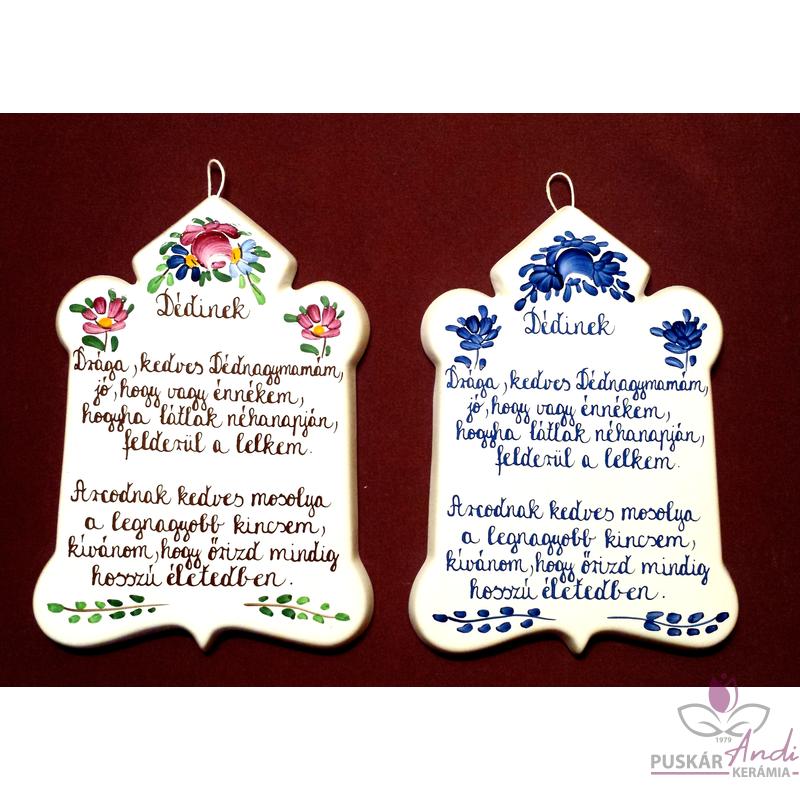 Dédinek
Drága, kedves Dédnagymamám,
jó, hogy vagy énnékem,
hogyha látlak néhanapján,
felderül a lelkem.
Arcodnak kedves mosolya
a legnagyobb kincsem,
kívánom, hogy őrizd mindig
hosszú életedben.
Dédinek
Drága, kedves Dédnagymamám,
jó, hogy vagy énnékem,
hogyha látlak néhanapján,
felderül a lelkem.
Arcodnak kedves mosolya
a legnagyobb kincsem,
kívánom, hogy őrizd mindig
hosszú életedben.
1979
PUSKÁR Andi
KERÁMIA